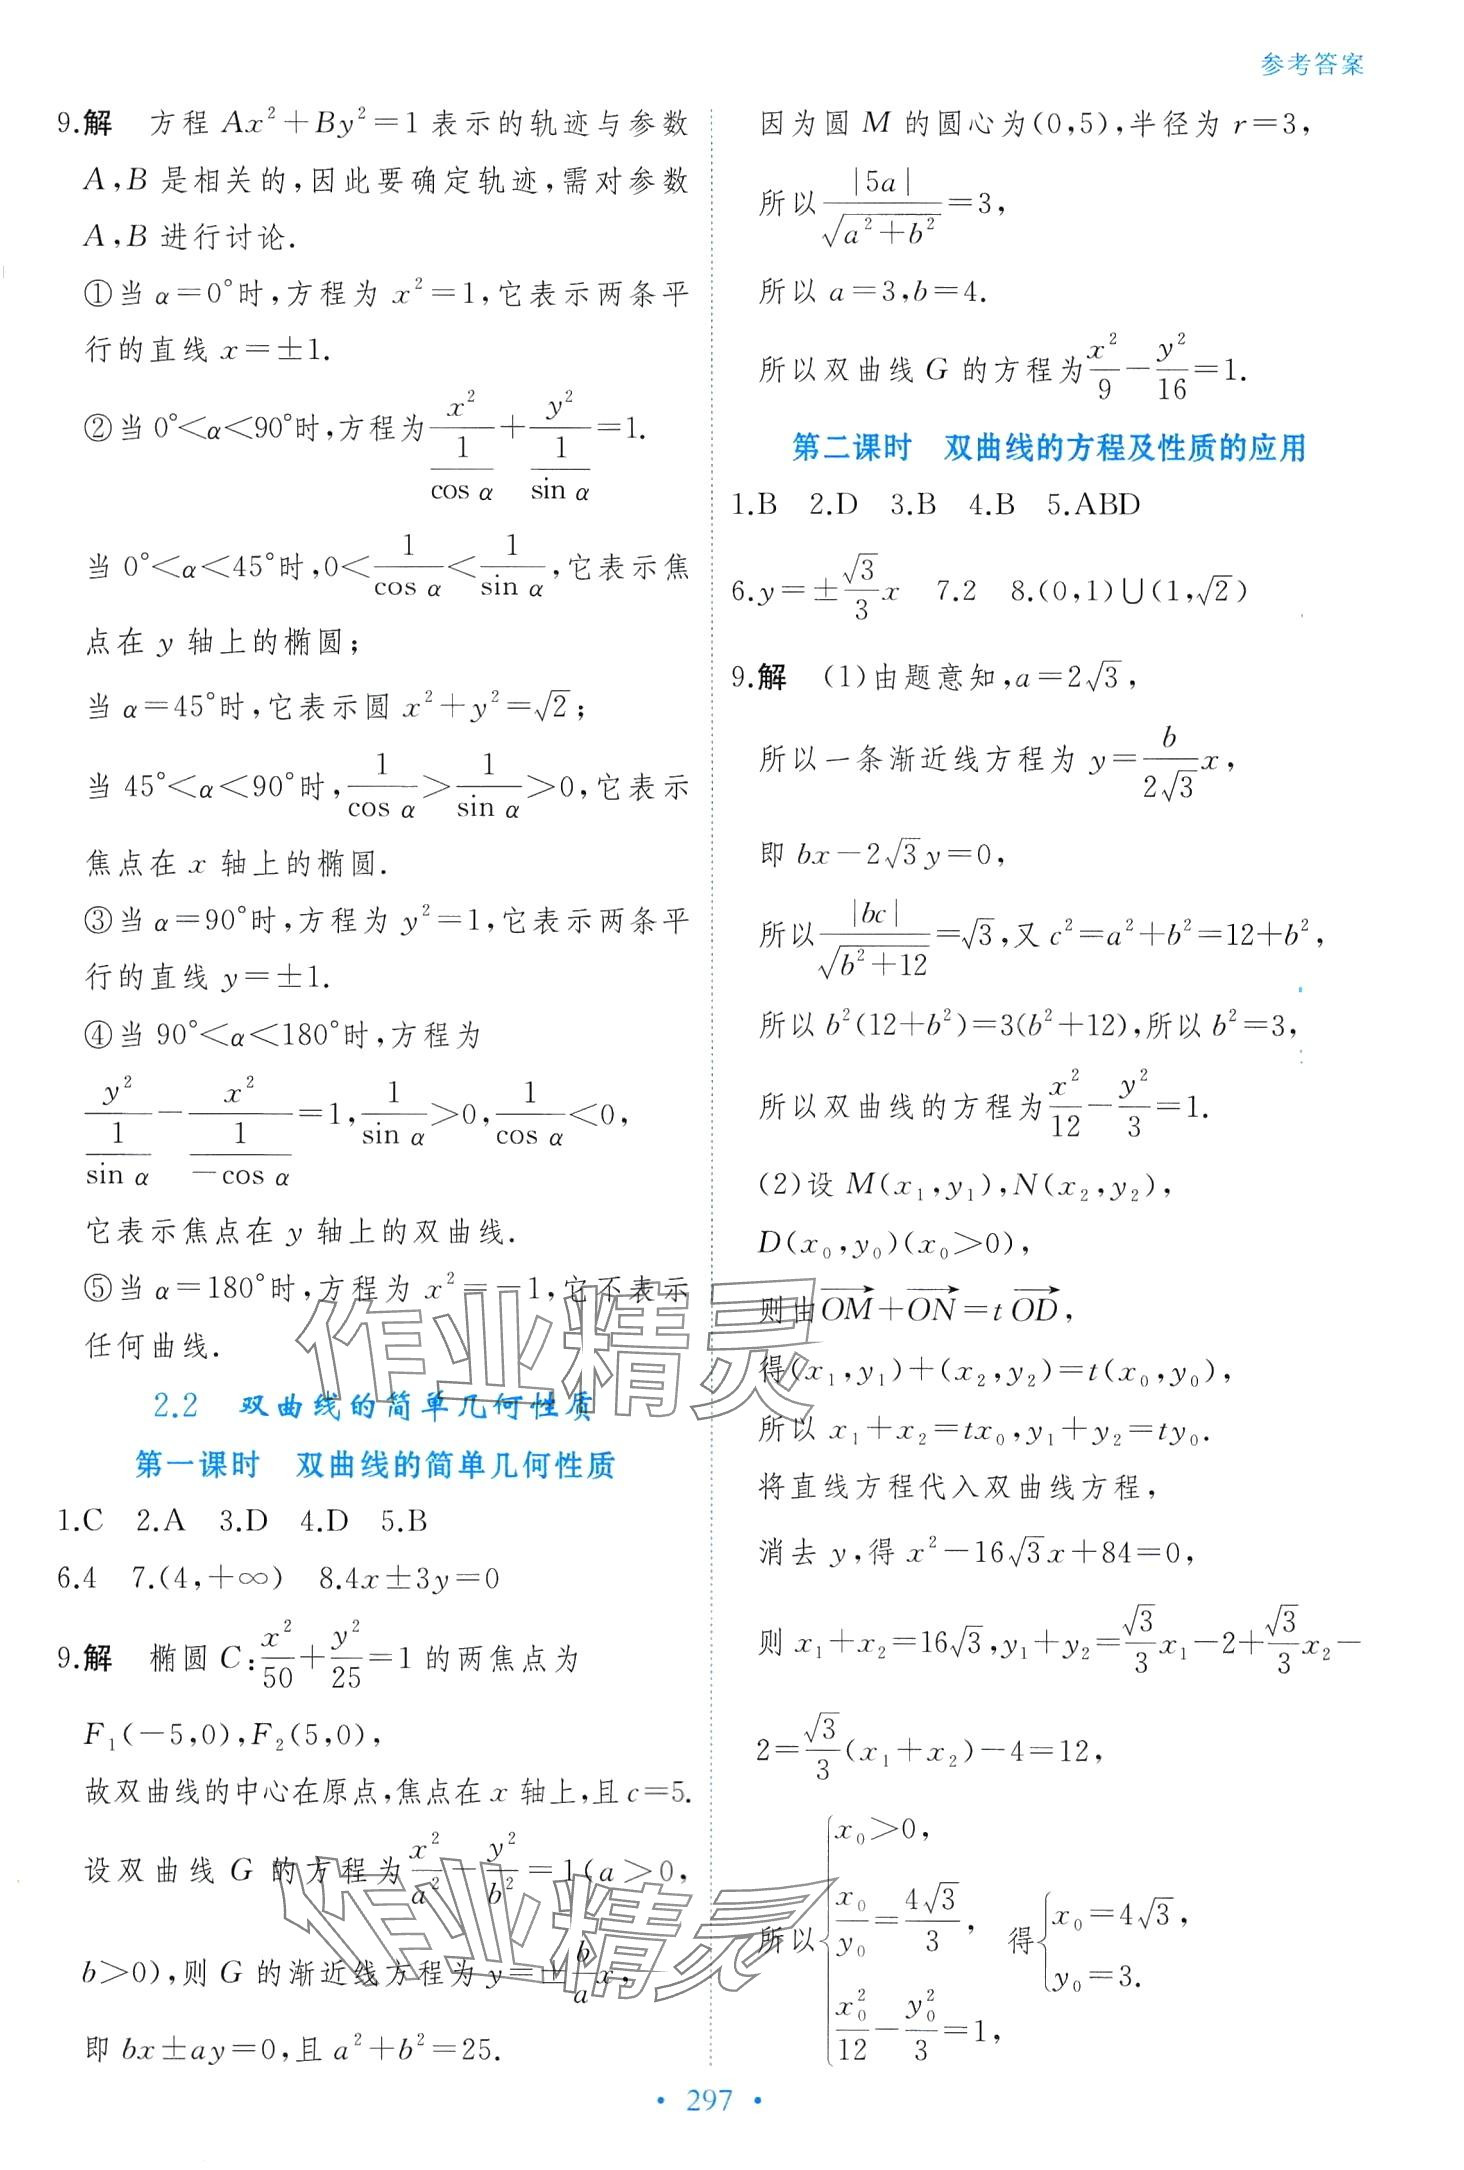 参考答案
9.解 方程 Ax²+By²=1 表示的轨迹与参数
A,B 是相关的,因此要确定轨迹,需对参数
A,B 进行讨论.
①当 α=0°时,方程为 x²=1,它表示两条平
行的直线 x=±1.
②当 0°<α<90°时,方程为 x²/(1/cos α)+y²/(1/sin α)=1.
当 0°<α<45°时,0<1/cos α<1/sin α,它表示焦
点在 y 轴上的椭圆;
当 α=45°时,它表示圆 x²+y²=√2;
当 45°<α<90°时,1/cos α>1/sin α>0,它表示
焦点在 x 轴上的椭圆.
③当 α=90°时,方程为 y²=1,它表示两条平
行的直线 y=±1.
④当 90°<α<180°时,方程为
y²/(1/sin α)-x²/(1/-cos α)=1,1/sin α>0,1/cos α<0,
它表示焦点在 y 轴上的双曲线.
⑤当 α=180°时,方程为 x²=-1,它不表示
任何曲线.
2.2 双曲线的简单几何性质
第一课时 双曲线的简单几何性质
1.C 2.A 3.D 4.D 5.B
6.4 7.(4,+∞) 8.4x±3y=0
9.解 椭圆 C:x²/50+y²/25=1 的两焦点为
F₁(-5,0),F₂(5,0),
故双曲线的中心在原点,焦点在 x 轴上,且 c=5.
设双曲线 G 的方程为x²/a²-y²/b²=1(a>0,
b>0),则 G 的渐近线方程为 y=±b/a x,
即 bx±ay=0,且 a²+b²=25.
因为圆 M 的圆心为(0,5),半径为 r=3,
所以|5a|/√(a²+b²)=3,
所以 a=3,b=4.
所以双曲线 G 的方程为x²/9-y²/16=1.
第二课时 双曲线的方程及性质的应用
1.B 2.D 3.B 4.B 5.ABD
6.y=±√3/3 x 7.2 8.(0,1)∪(1,√2)
9.解 (1)由题意知,a=2√3,
所以一条渐近线方程为 y=b/(2√3) x,
即 bx-2√3y=0,
所以|bc|/√(b²+12)=√3,又 c²=a²+b²=12+b²,
所以 b²(12+b²)=3(b²+12),所以 b²=3,
所以双曲线的方程为x²/12-y²/3=1.
(2)设 M(x₁,y₁),N(x₂,y₂),
D(x₀,y₀)(x₀>0),
则由OM→+ON→=t OD→,
得(x₁,y₁)+(x₂,y₂)=t(x₀,y₀),
所以 x₁+x₂=tx₀,y₁+y₂=ty₀.
将直线方程代入双曲线方程,
消去 y,得 x²-16√3x+84=0,
则 x₁+x₂=16√3,y₁+y₂=√3/3 x₁-2+√3/3 x₂-
2=√3/3(x₁+x₂)-4=12,
所以{x₀>0, x₀/y₀=4√3/3, x₀²/12-y₀²/3=1, 得{x₀=4√3, y₀=3.
• 297 •
作业精灵
作业精灵